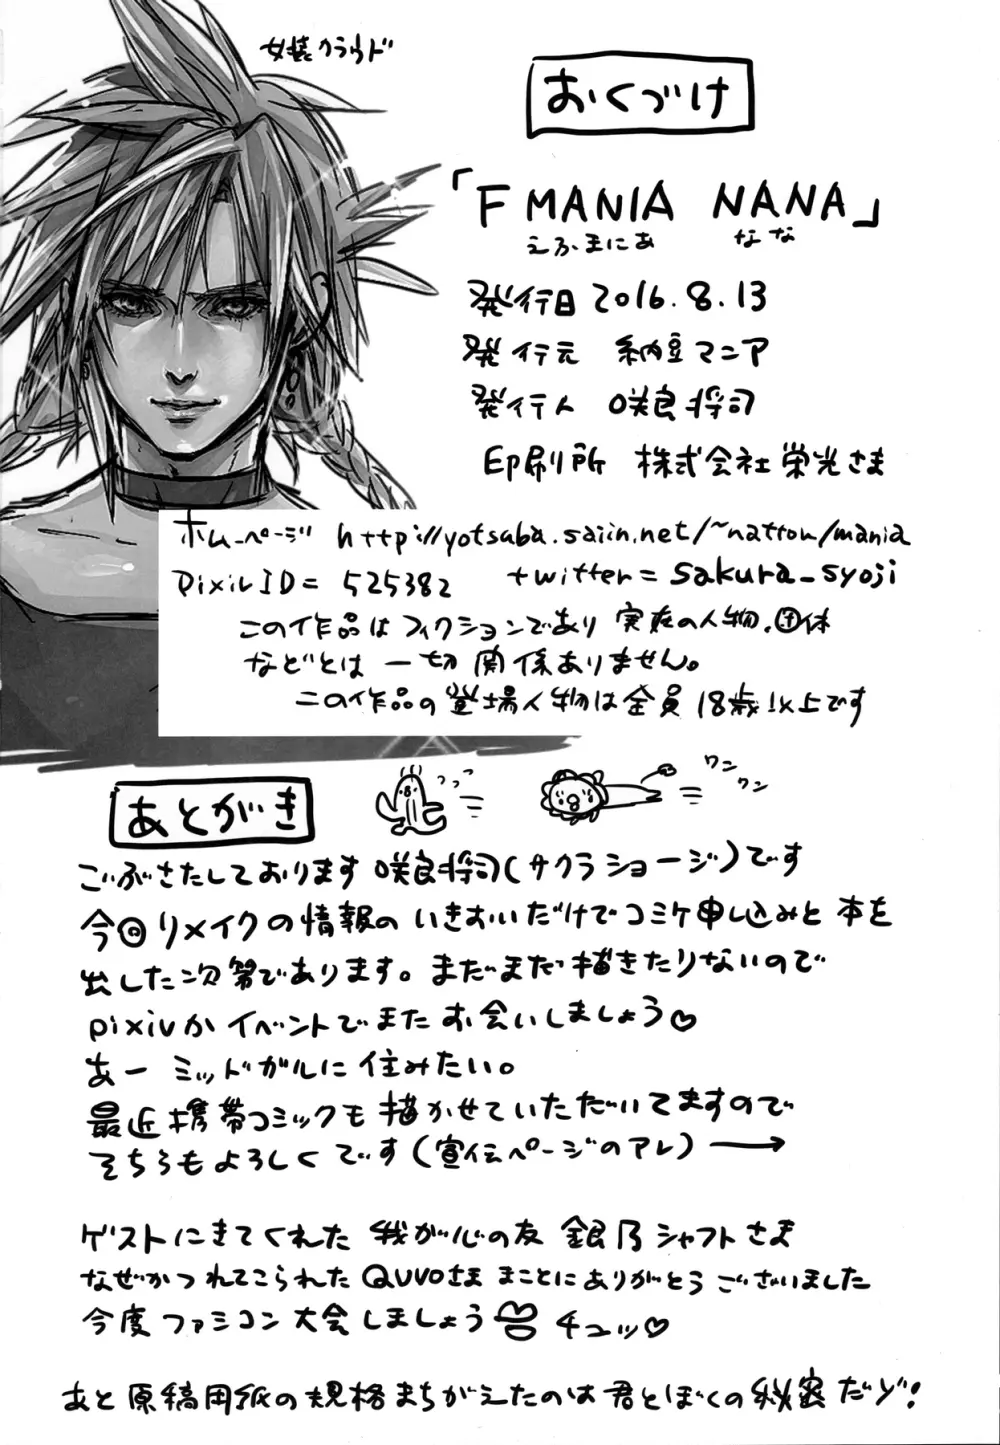 女装クラウド
おくづけ
「F MANIA NANA」
えふまにあ なな
発行日 2016.8.13
発行元 納豆マニア
発行人 咲良将司
印刷所 株式会社栄光さま
ホームページ http://yotsuba.saiin.net/~nattou/mania
pixiv ID = 525382 twitter = sakura_syoji
この作品はフィクションであり 実在の人物、団体
などとは 一切関係ありません。
この作品の登場人物は全員18歳以上です
あとがき
っっっ
ワン
ワン
ごぶさたしております 咲良将司(サクラショージ)です
今回リメイクの情報の いきおいだけでコミケ申し込みと 本を
出した次第であります。まだまだ描きたりないので
pixivかイベントでまた お会いしましょう♡
あー ミッドガルに住みたい。
最近携帯コミックも描かせていただいてますので
そちらもよろしくです(宣伝ページのアレ)→
ゲストにきてくれた 我が心の友 銀乃シャフトさま
なぜかつれてこられたQUVOさま まことにありがとうございました
今度ファミコン大会しましょう チュッ♡
あと原稿用紙の規格まちがえたのは君とぼくの秘密だゾ!